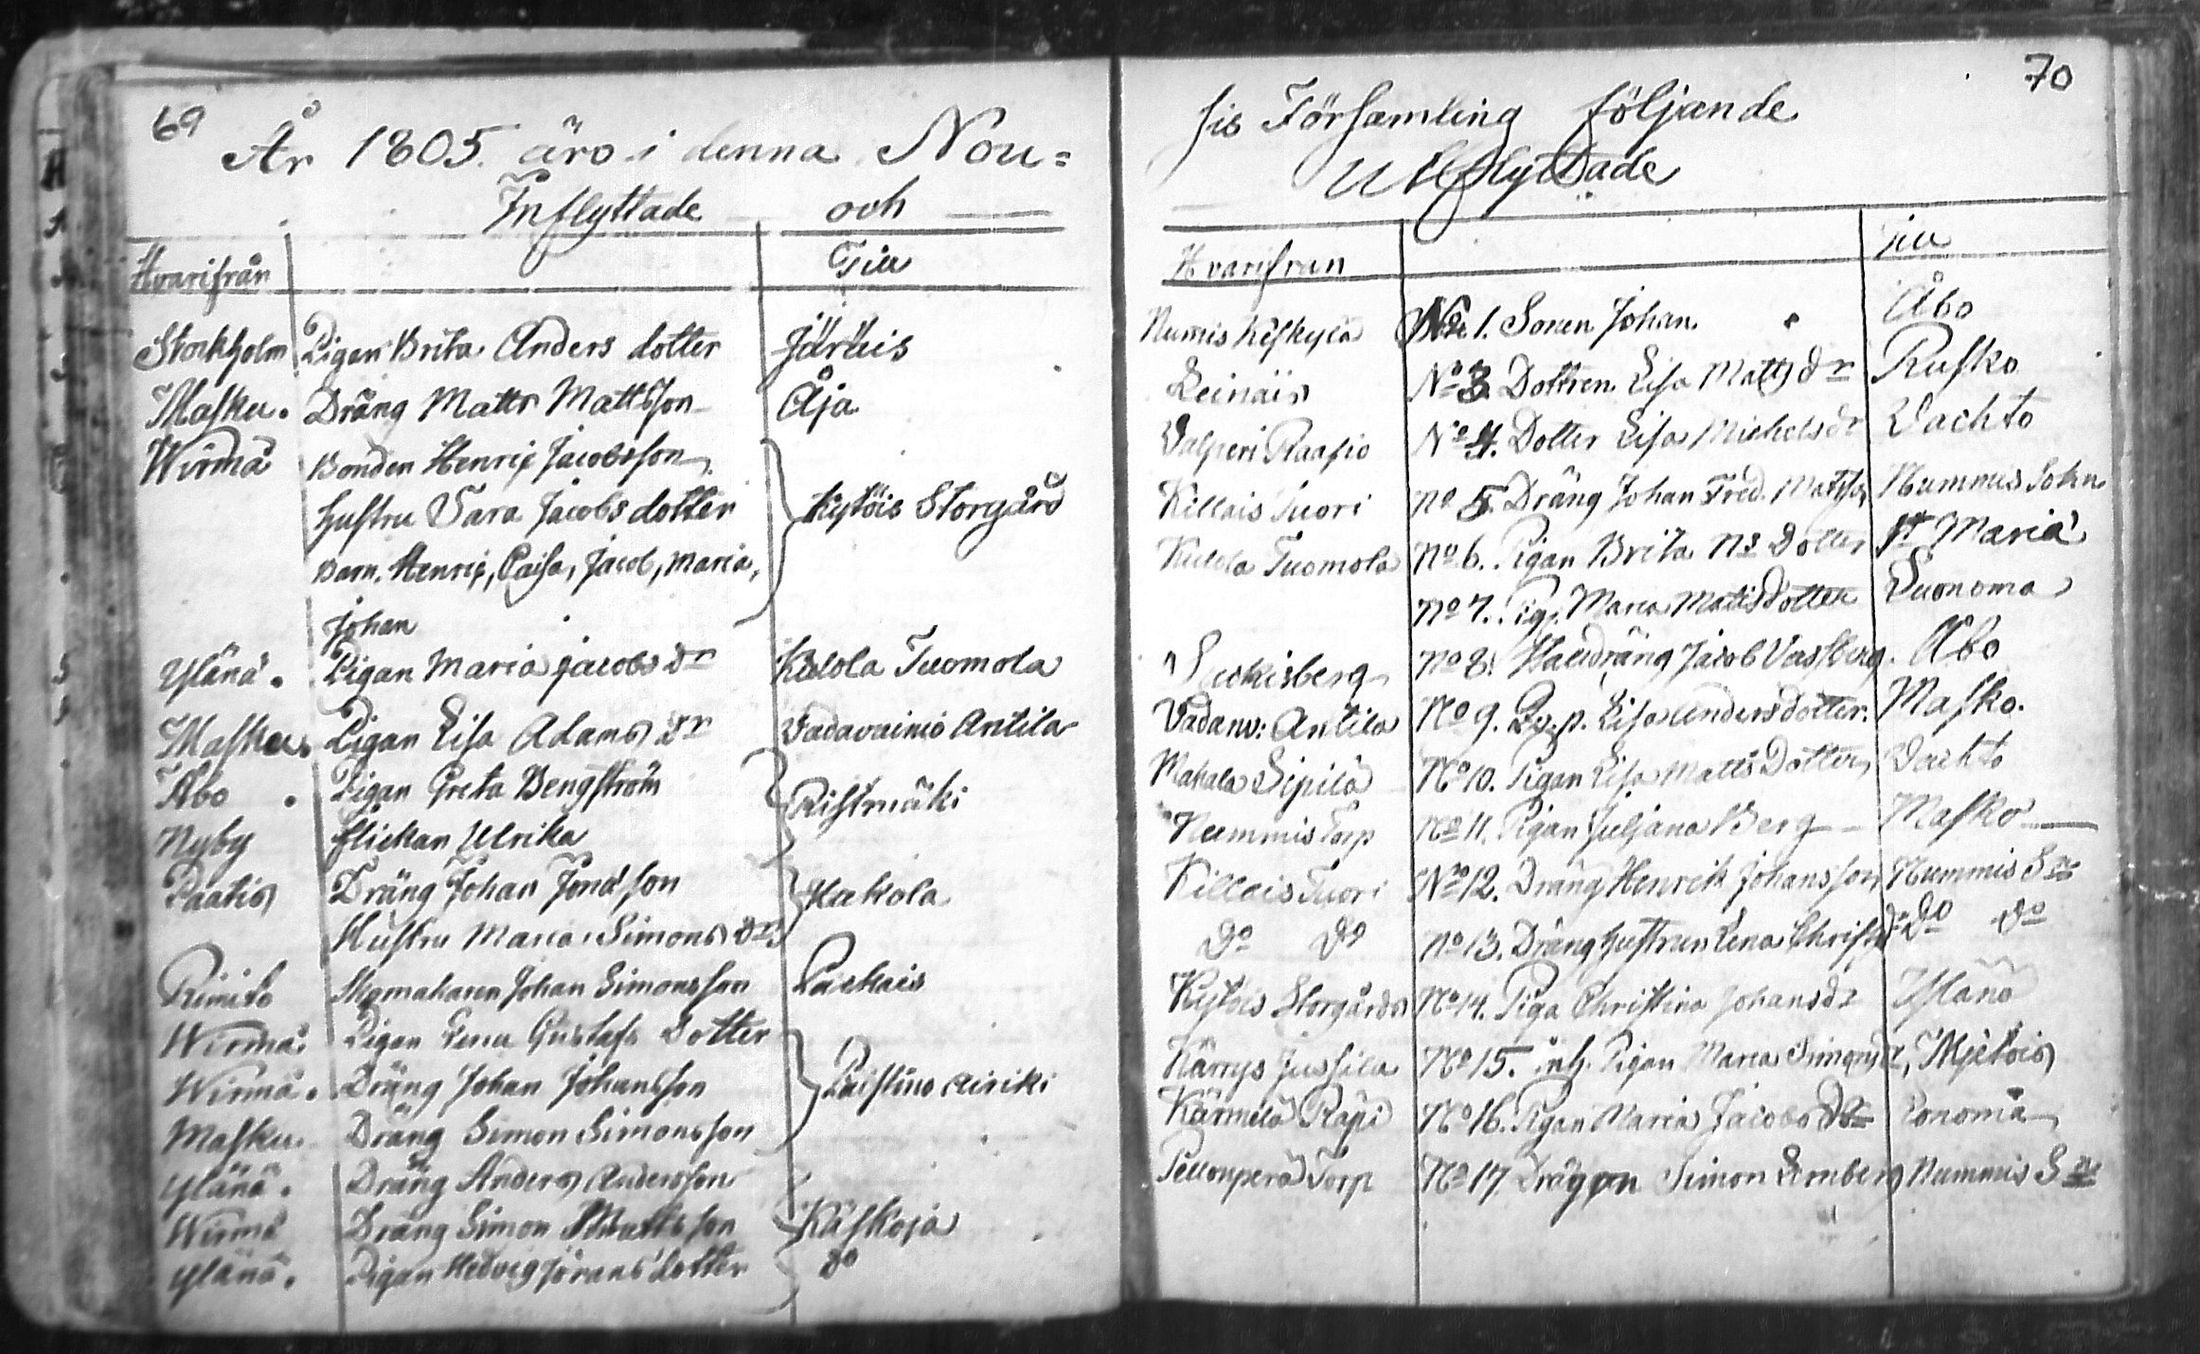 69
År 1805. äro i denna Nou=
Inflyttade och
Hvarifrån Till
Stockholm Pigan Brita Anders dotter Järäis
Masku. Dräng Matts Mattsson Åja
Wirmå Bonden Henrix Jacobsson
Hustru Sara Jacobs dotter Kytöis Storgård
Barn. Henrix, Caisa, Jacob, Maria,
Johan
Yläné. Pigan Maria Jacobs dr Kulola Tuomola
Masku. Pigan Lisa Adams dr Vadavainio Antila
Åbo. Pigan Greta Bengström Ristmäki
Nyby flickan Ulrika
Paatis Dräng Johan Jonasson Kakola
Hustru Maria Simons dr
Rimito Skomakaren Johan Simonsson Paickais
Wirmå. Pigan Lena Gustafs Dotter
Wirmå. Dräng Johan Johansson Paistino Airiki
Masku. Dräng Simon Simonsson
Yläné. Dräng Anders Andersson
Wirmå Dräng Simon Mattsson Käskoja
Yläné. Pigan Hedvig Jörans dotter do
70
sis Församling följande
Utflyttade
Hvarifran Till
Numis Keskylä No 1. Sonen Johan Åbo
Leinäis No 3. Dottren Lisa Matts dr Rusko
Valperi Raasio No 4. Dotter Lisa Michels dr Vachto
Killais Tuori No 5. Dräng Johan Fred. Matss. Nummis Sokn
Kulola Tuomola No 6. Pigan Brita Ns Dotter St Mariæ
No 7. Pig. Maria Mattsdotter Luonoma
No 8. Dräng Jacob Åbo
Vadanv: Antila No 9. Lisa Andersdotter. Masko.
Makala Sipilä No 10. Pigan Lisa Matts Dotter Vachto
Nummis Torp No 11. Pigan Juljana Berg Masko
Killais Tuori No 12. Dräng Henrik Johansson Nummis Sn
do do No 13. Dräng hustrun Lena Christ. dr do do
Kytöis Storgårds No 14. Piga Christina Johans dr Yläné
Kärrys Jussila No 15. inh. Pigan Maria Simons dr, Mjetois
Kärmelä Räpi No 16. Pigan Maria Jacobs dr Lonoma
Pellonperä Torp No 17. Drägon Simon Lemberg Nummis Sn